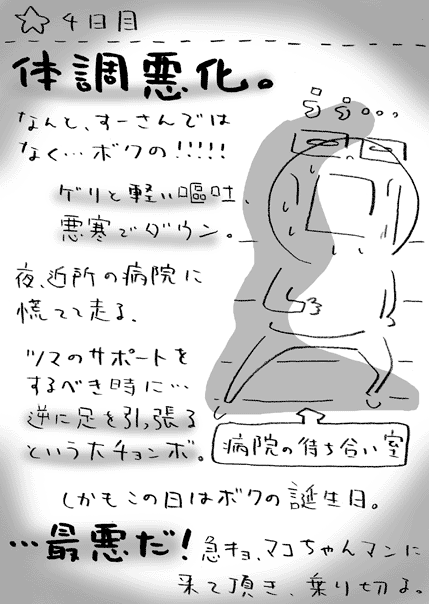 ☆4日目
体調悪化。
なんと、すーさんでは
なく…ボクの!!!!!
ゲリと軽い嘔吐、
悪寒でダウン。
夜、近所の病院に
慌てて走る。
ツマのサポートを
するべき時に…
逆に足を引っ張る
という大チョンボ。
病院の待ち合い室
しかもこの日はボクの誕生日。
…最悪だ!急キョ、マコちゃんマンに
来て頂き、乗り切る。